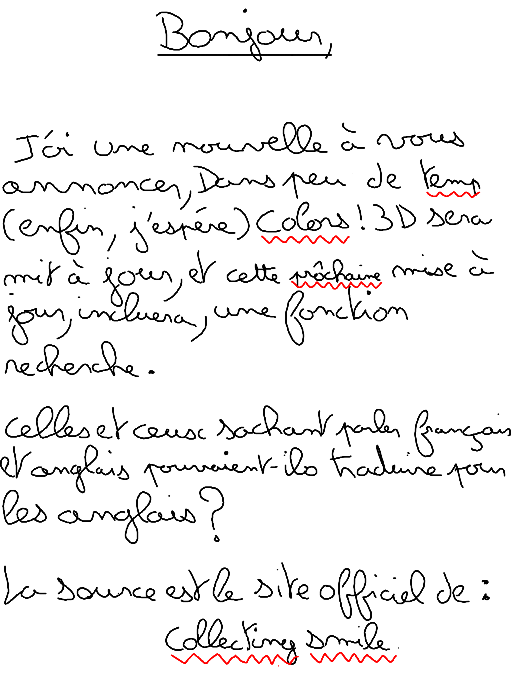 Bonjour,
J'ai une nouvelle à vous
annoncer, Dans peu de temp
(enfin, j'espére) Colors! 3D sera
mit à jour, et cette prôchaine mise à
jour, incluera, une fonction
recherche.
Celles et ceux sachant parler français
et anglais pourraient-ils traduire pour
les anglais?
La source est le site officiel de :
Collecting smile.